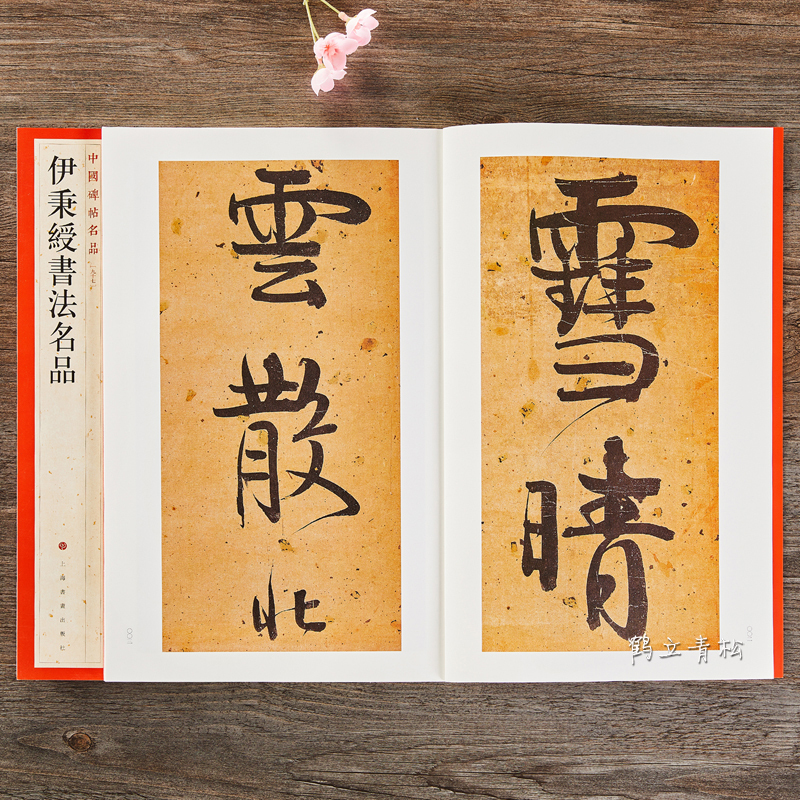 雪晴
雲散北
中國碑帖名品
伊秉綬書法名品
上海書畫出版社
鹤立青松